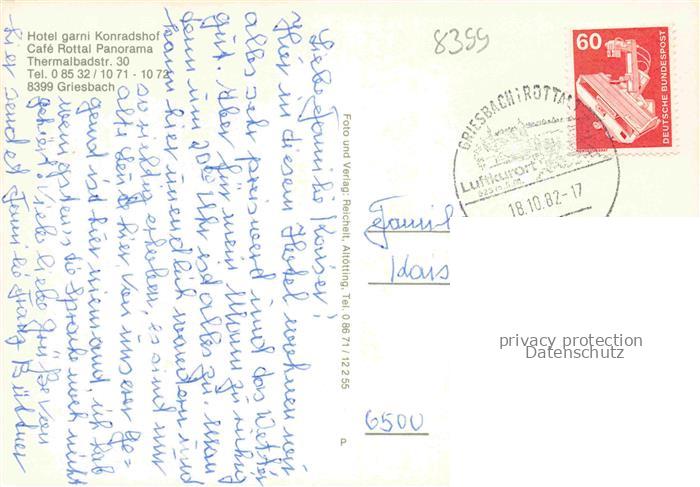 Hotel garni Konradshof
Café Rottal Panorama
Thermalbadstr. 30
Tel. 0 85 32 / 10 71 - 10 72
8399 Griesbach
8399
60
DEUTSCHE BUNDESPOST
GRIESBACH i ROTTAL
Luftkurort
18.10.82-17
Liebe Familie Kaiser!
Hier in diesem Hotel wohnen wir
alles sehr preiswert und das Wetter
gut. Aber für mein Mann zu ruhig
denn um 20 Uhr ist alles zu. Man
kann hier unendlich wandern und
so richtig erholen, es sind nur
alte Leute hier, von unserer Ge=
gend ist hier niemand, ich hab
wenigstens die Sprache noch nicht
gehört. Viele liebe Grüße von
hier sendet Familie Franz Büttner
Foto und Verlag: Reichelt, Altötting, Tel. 0 86 71 / 12 2 55
P
Famil
Kais
6500
privacy protection
Datenschutz